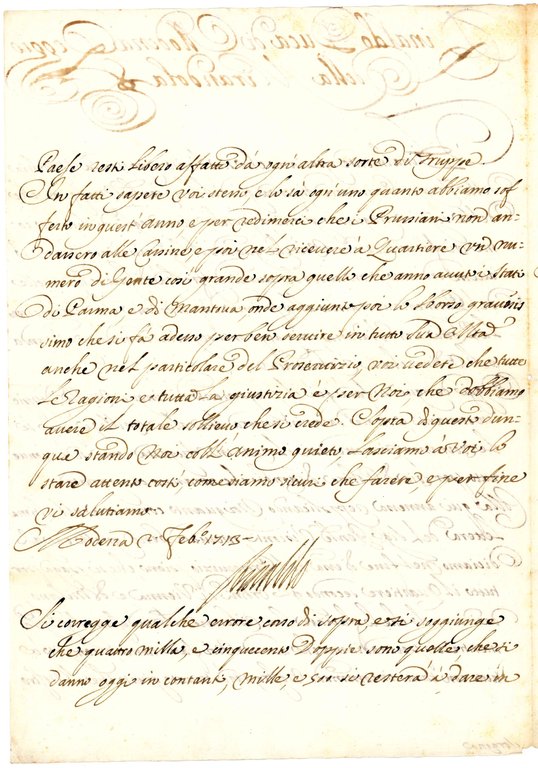 Paese resti libero affatto da ogni altra sorte di Truppe.
In fatti sapete voi stessi e lo sà ogn'uno quanto abbiamo sof-
ferto in quest'anno e per redimerci che i Prussiani non an-
dassero alle Cassine e poi nel ricevere à Quartiere un nu-
mero di Gente così grande sopra quello che anno avuti i stati
di Parma e di Mantova onde aggiunto poi lo sborso gravosis
simo che si fà adesso per ben servire in tutto Sua Mtà
anche nel particolare del Proservizio, voi vedete che tutte
le Ragioni e tutta la giustizia è per Noi che dobbiamo
avere il totale sollievo che si crede. Sopra di questo dun-
que stando Noi coll'animo quieto, lasciamo à Voi lo
stare attento costì, come siamo sicuri che farete, e per fine
vi salutiamo.
Modena 2 Feb.o 1713-
Rinaldo
Si corregge qualche errore corso di sopra, e si soggiunge
che quattro milla, e cinquecento Doppie sono quelle che si
danno oggi in contanti, mille, e si resterà à dare in